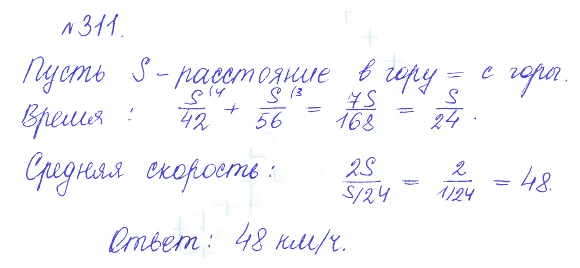 №311.
Пусть S - расстояние в гору = с горы.
Время : S/42 (4 + S/56 (3 = 7S/168 = S/24 .
Средняя скорость : 2S / S/24 = 2 / 1/24 = 48.
Ответ : 48 км/ч.